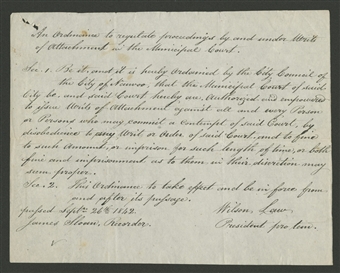 An Ordinance to regulate proceedings by and under Writs
of Attachment in the Municipal Court.
Sec. 1. Be it, and it is hereby Ordained by the City Council of
the City of Nauvoo, that the Municipal Court of said
City be, and said Court hereby are, Authorized and empowered
to issue Writs of Attachment against all and every Person
or Persons who may commit a contempt of said Court, by
disobedience to any Writ or Order of said Court, and to fine
to such Amount, or imprison for such length of time, or both
fine and imprisonment as to them in their discretion may
seem proper.
Sec. 2. This Ordinance to take effect and be in force from
and after its passage.
passed Septr. 26th 1842. Wilson Law
James Sloan, Recorder. President pro tem.